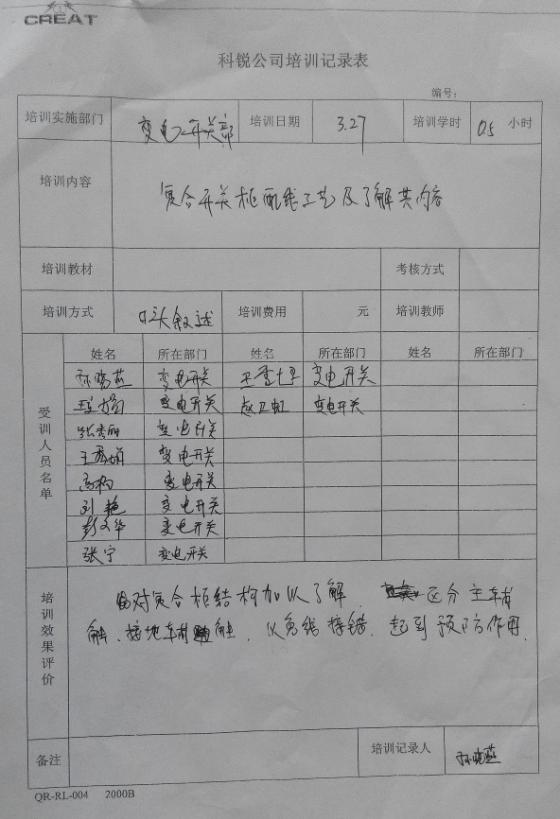 CREAT
科锐公司培训记录表
编号：
培训实施部门 变电开关部 培训日期 3.27 培训学时 0.5 小时
培训内容 复合开关柜配线工艺及了解其内容
培训教材 考核方式
培训方式 口头叙述 培训费用 元 培训教师
受训人员名单
姓名 所在部门 姓名 所在部门 姓名 所在部门
孙晓燕 变电开关 变电开关
变电开关 赵卫红 变电开关
张秀丽 变电开关
变电开关
变电开关
刘艳 变电开关
彭文华 变电开关
张宁 变电开关
培训效果评价
对复合柜结构加以了解 区分主辅
触、接地辅触，以免线接错，起到预防作用
备注 培训记录人 孙晓燕
QR-RL-004 2000B